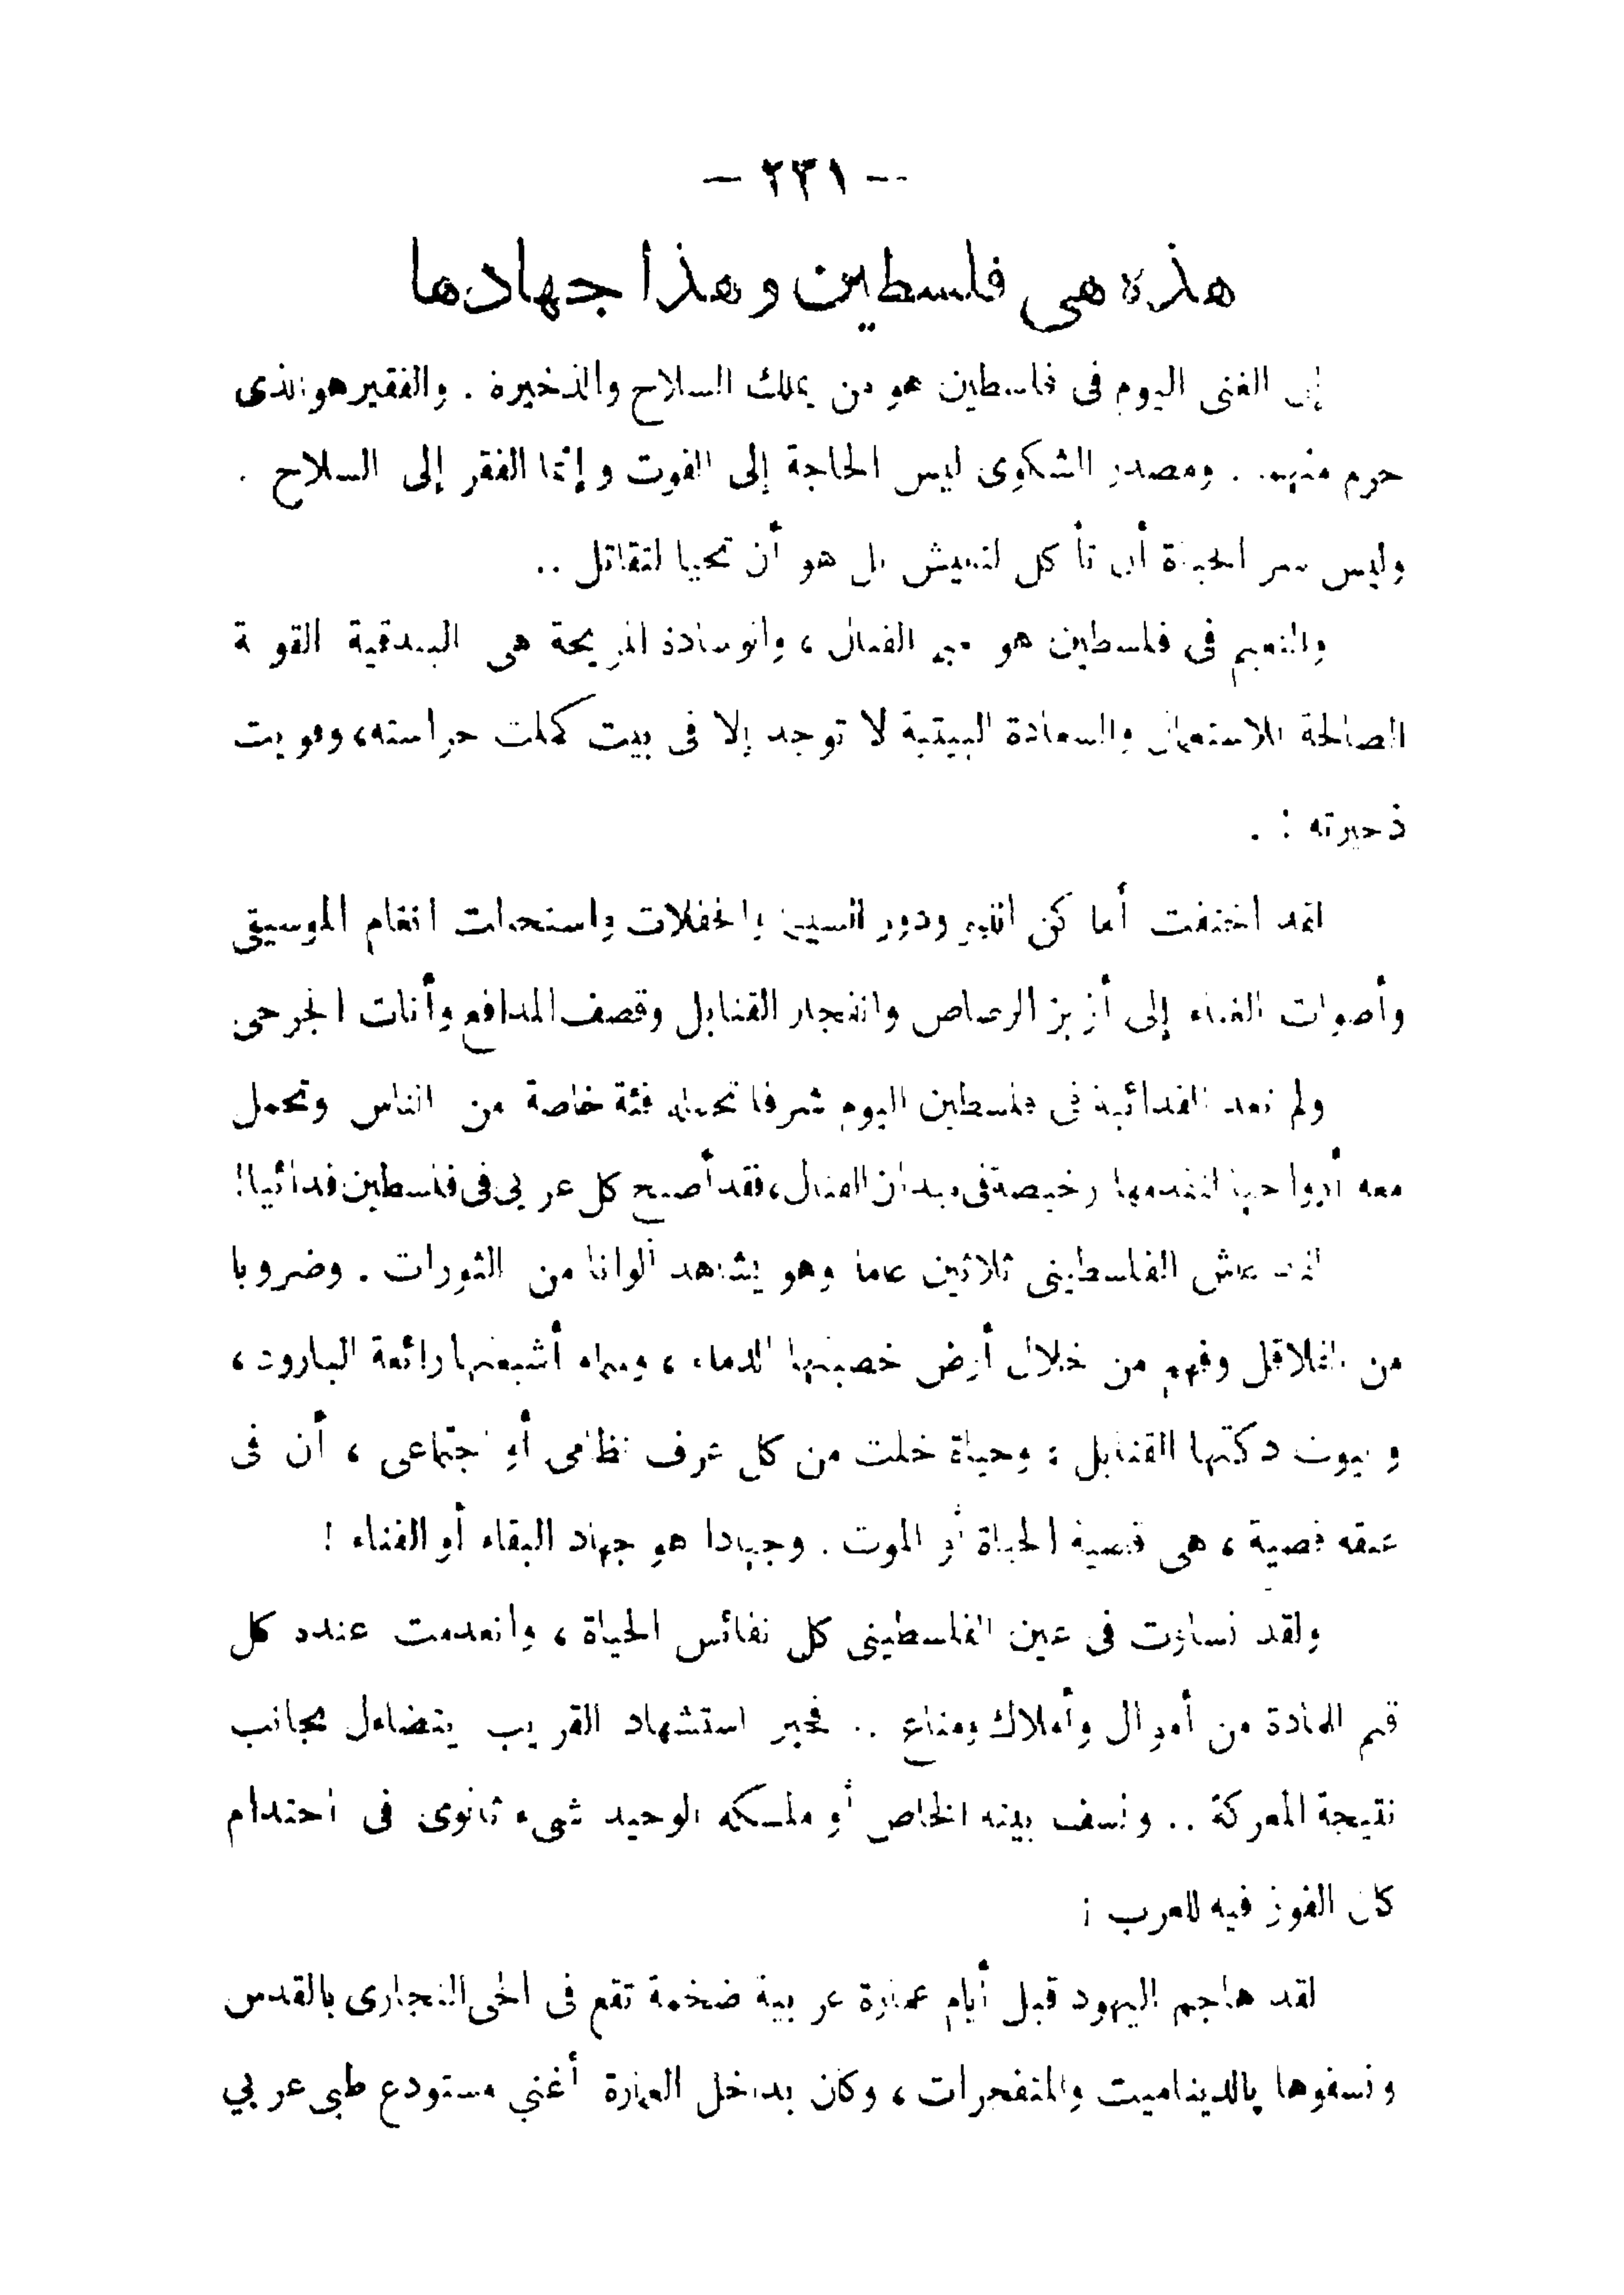 — ٢٣١ —
هذه هى فلسطين وهذا جهادها
إن الغنى اليوم فى فلسطين هو من يملك السلاح والذخيرة . والفقير هو الذى
حرم منهما . ومصدر الشكوى ليس الحاجة إلى القوت وإنما الفقر إلى السلاح .
وليس سر الحياة أن تأكل لتعيش بل هو أن تحيا لتقاتل ..
والنعيم فى فلسطين هو القتال ، والوسادة المريحة هى البندقية القوية
الصالحة للاستعمال والسعادة البيتية لا توجد إلا فى بيت كملت حراسته، وقويت
ذخيرته : .
لقد اختفت أماكن اللهو ودور السينما والحفلات واستحالت انغام الموسيقى
وأصوات الغناء إلى أزيز الرصاص وانفجار القنابل وقصف المدافع وأنات الجرحى
ولم تعد الفدائية فى فلسطين اليوم شرفا تحمله فئة خاصة من الناس وتحمل
معه أرواحها لتقدمها رخيصة فى ميدان القتال، فقد أصبح كل عربى فى فلسطين فدائيا!
لقد عاش الفلسطينى ثلاثين عاما وهو يشاهد ألوانا من الثورات . وضروبا
من القلاقل وفهم من خلال أرض خضبتها الدماء ، وسماء أشبعتها رائحة البارود ،
وبيوت دكتها القنابل : وحياة خلت من كل عرف نظامى أو اجتماعى ، أن فى
عنقه قضية ، هى قضية الحياة أو الموت . وجهادا هو جهاد البقاء أو الفناء !
ولقد تساوت فى عين الفلسطينى كل نفائس الحياة ، وانعدمت عنده كل
قيم المادة من أموال وأملاك ومتاع .. فخبر استشهاد القريب يتضاءل بجانب
نتيجة المعركة .. ونسف بيته الخاص أو ملكه الوحيد شىء ثانوى فى احتدام
كان الفوز فيه للعرب ؛
لقد هاجم اليهود قبل أيام عمارة عربية ضخمة تقع فى الحى التجارى بالقدس
ونسفوها بالديناميت والمتفجرات ، وكان بداخل العمارة أغنى مستودع طبى عربي